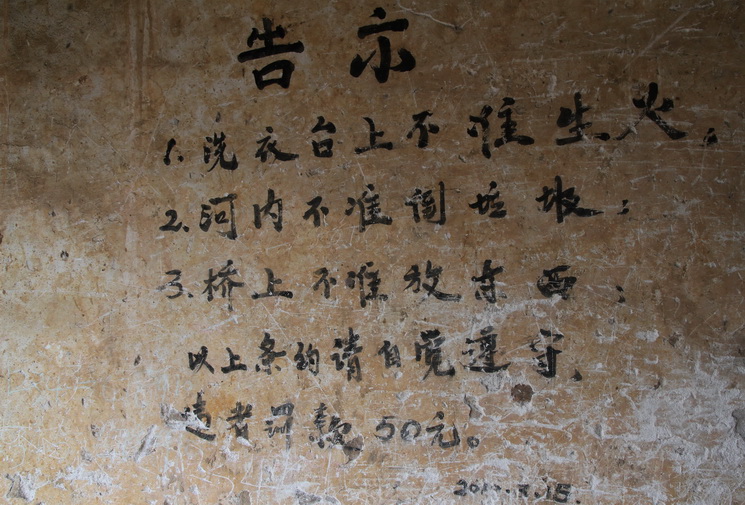 告示
1. 洗衣台上不准生火；
2. 河内不准倒垃圾；
3. 桥上不准放东西；
以上条约请自觉遵守、
违者罚款50元。